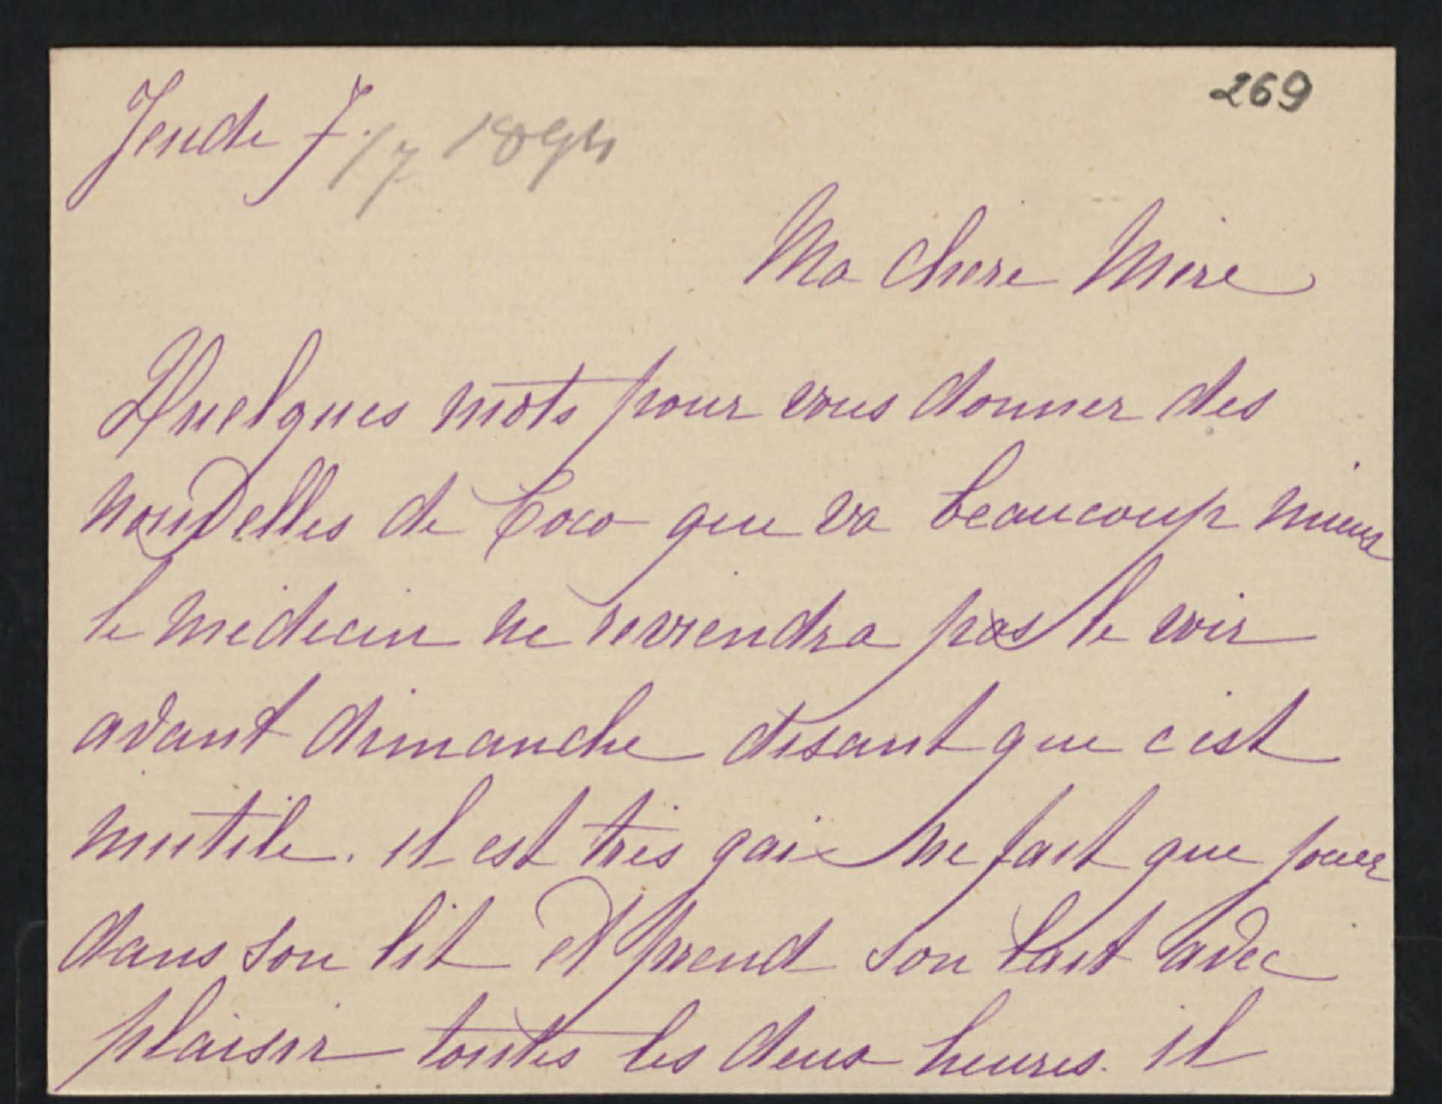 269
Jeudi 7. /7 1894
Ma chere Mere
Quelques mots pour vous donner des
nouvelles de Coco que va beaucoup mieux
le medecin ne reviendra pas le voir
avant dimanche disant que c'est
inutile. il est très gai ne fait que jouer
dans son lit et prend son lait avec
plaisir toutes les deux heures. il